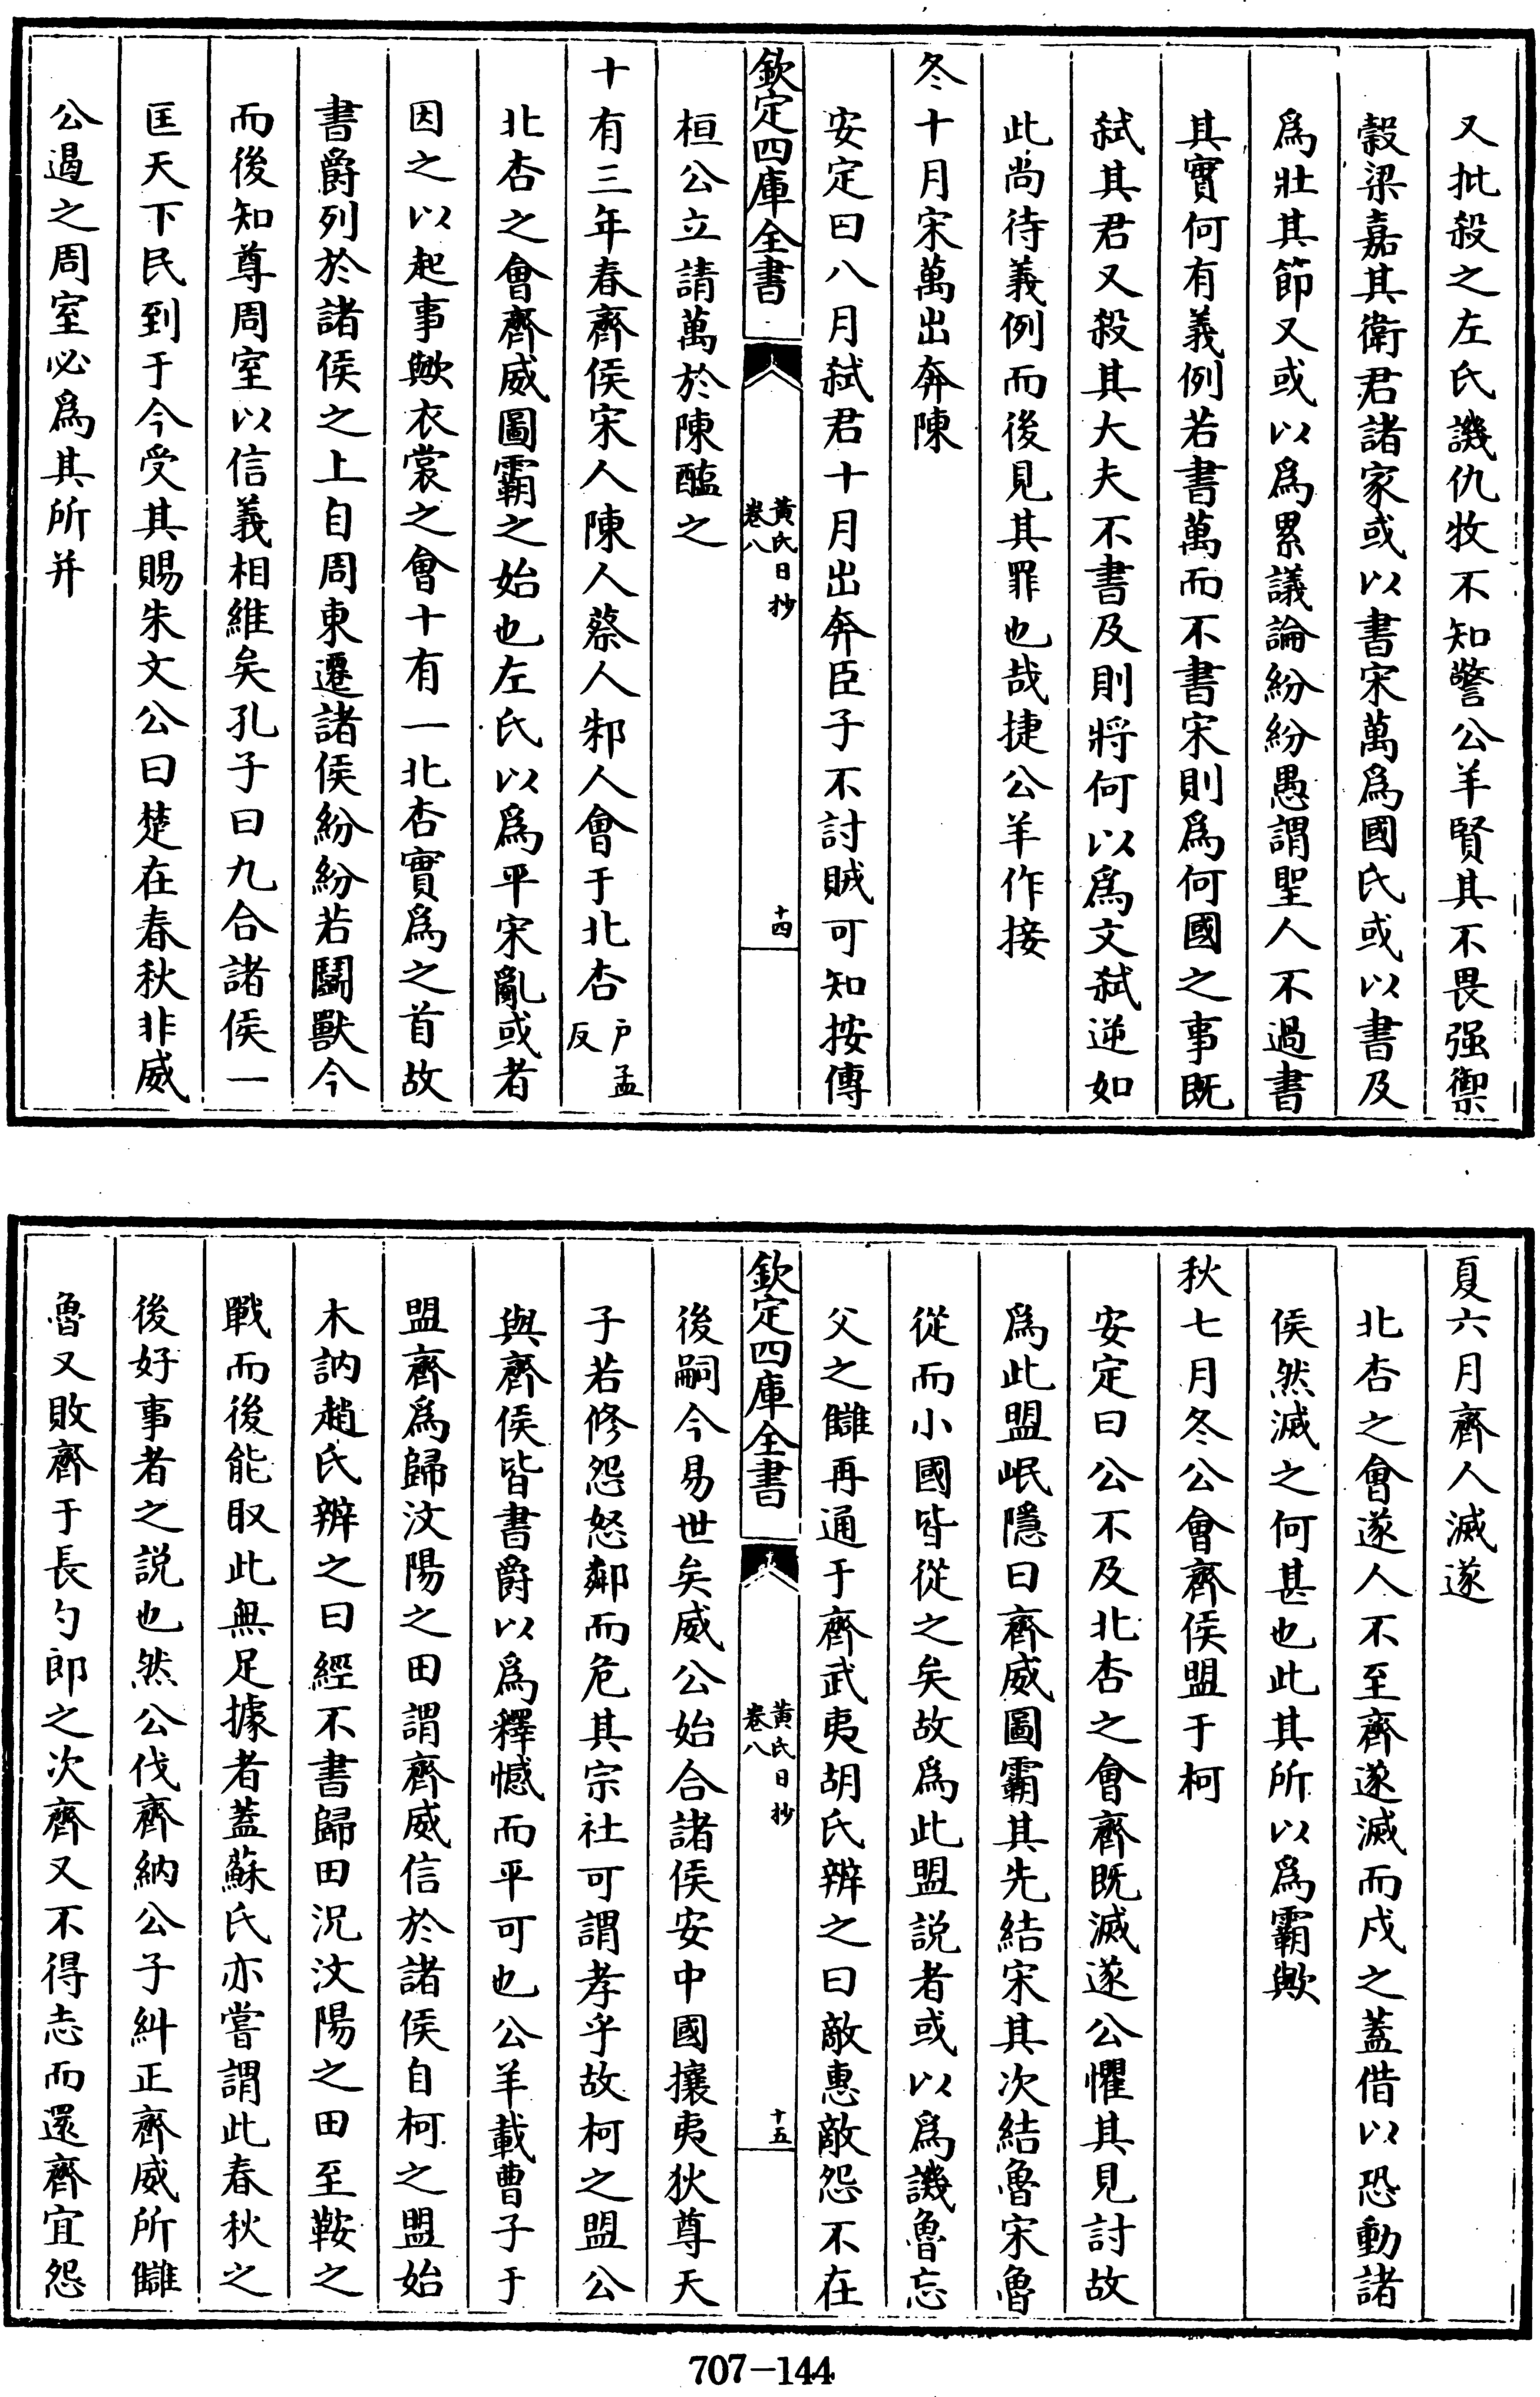 又批殺之左氏譏仇牧不知警公羊賢其不畏强禦
穀梁嘉其衛君諸家或以書宋萬爲國氏或以書及
爲壯其節又或以爲累議論紛紛愚謂聖人不過書
其實何有義例若書萬而不書宋則爲何國之事既
弑其君又殺其大夫不書及則將何以爲文弑逆如
此尚待義例而後見其罪也哉捷公羊作接
冬十月宋萬出奔陳
安定曰八月弑君十月出奔臣子不討賊可知按傳
欽定四庫全書
黃氏日抄
卷八
十四
桓公立請萬於陳醢之
十有三年春齊侯宋人陳人蔡人邾人會于北杏戶孟反
北杏之會齊威圖霸之始也左氏以爲平宋亂或者
因之以起事歟衣裳之會十有一北杏實爲之首故
書爵列於諸侯之上自周東遷諸侯紛紛若鬭獸今
而後知尊周室以信義相維矣孔子曰九合諸侯一
匡天下民到于今受其賜朱文公曰楚在春秋非威
公遏之周室必爲其所并
夏六月齊人滅遂
北杏之會遂人不至齊遂滅而戍之蓋借以恐動諸
侯然滅之何甚也此其所以爲霸歟
秋七月冬公會齊侯盟于柯
安定曰公不及北杏之會齊既滅遂公懼其見討故
爲此盟岷隱曰齊威圖霸其先結宋其次結魯宋魯
從而小國皆從之矣故爲此盟說者或以爲譏魯忘
父之讎再通于齊武夷胡氏辨之曰敵惠敵怨不在
欽定四庫全書
黃氏日抄
卷八
十五
後嗣今易世矣威公始合諸侯安中國攘夷狄尊天
子若修怨怒鄰而危其宗社可謂孝乎故柯之盟公
與齊侯皆書爵以爲釋憾而平可也公羊載曹子于
盟齊爲歸汶陽之田謂齊威信於諸侯自柯之盟始
木訥趙氏辨之曰經不書歸田況汶陽之田至鞍之
戰而後能取此無足據者蓋蘇氏亦嘗謂此春秋之
後好事者之説也然公伐齊納公子糾正齊威所讎
魯又敗齊于長勺郎之次齊又不得志而還齊宜怨
707-144